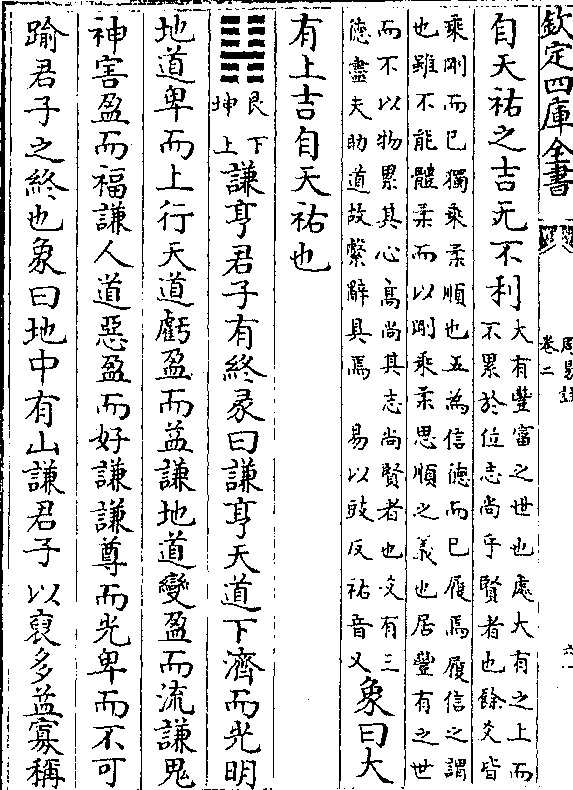 欽定四庫全書
周易註
卷二
自天祐之吉无不利
大有豐富之世也處大有之上而
不累於位志尚乎賢者也餘爻皆
乘剛而已獨乘柔順也五為信德而已履焉履信之謂
也雖不能體柔而以剛乘柔思順之義也居豐有之世
而不以物累其心高尚其志尚賢者也爻有三
德盡夫助道故繫辭具焉　易以豉反祐音又
象曰大
有上吉自天祐也
䷎
艮下
坤上
謙亨君子有終彖曰謙亨天道下濟而光明
地道卑而上行天道虧盈而益謙地道變盈而流謙鬼
神害盈而福謙人道惡盈而好謙謙尊而光卑而不可
踰君子之終也象曰地中有山謙君子以裒多益寡稱